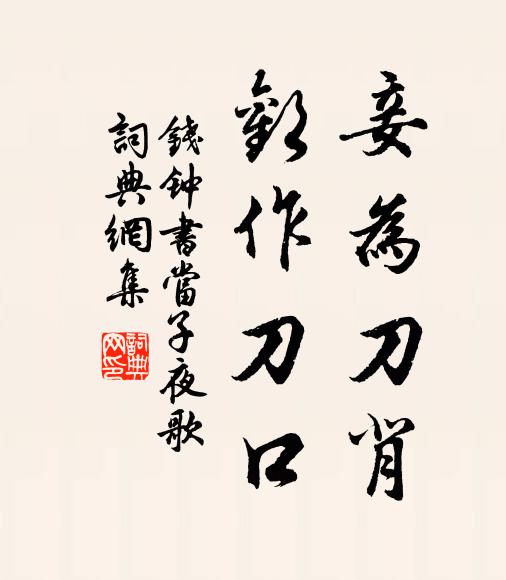 妾為刀背
歡作刀口
錢钟書當子夜歌
詞典網集
詞典
网印